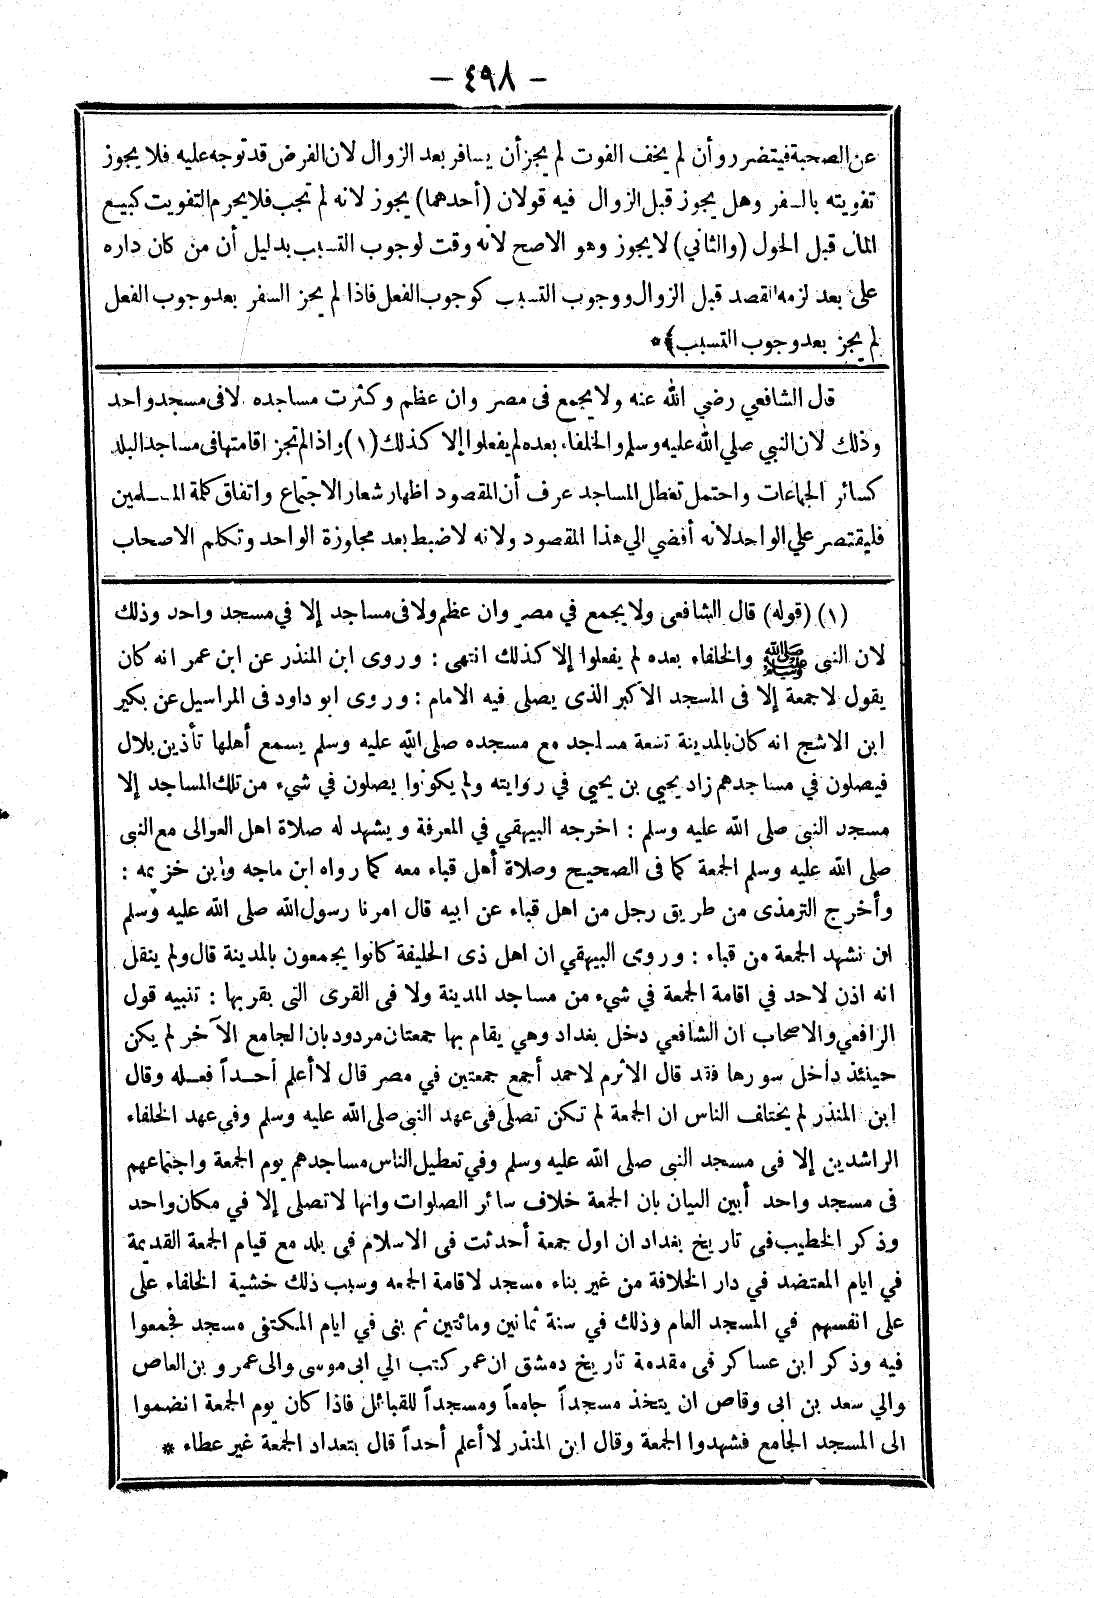 — ٤٩٨ —
عن الصحبة فيتضرر وأن لم يخف الفوت لم يجز أن يسافر بعد الزوال لان الفرض قد توجه عليه فلا يجوز
تفويته بالسفر وهل يجوز قبل الزوال فيه قولان (أحدهما) يجوز لانه لم تجب فلا يحرم التفويت كبيع
المال قبل الحول (والثاني) لا يجوز وهو الاصح لانه وقت لوجوب التسبب بدليل أن من كان داره
على بعد لزمه القصد قبل الزوال ووجوب التسبب كوجوب الفعل فاذا لم يجز السفر بعد وجوب الفعل
لم يجز بعد وجوب التسبب﴾*
قال الشافعي رضي الله عنه ولا يجمع فى مصر وان عظم وكثرت مساجده لا فى مسجد واحد
وذلك لان النبي صلي الله عليه وسلم والخلفاء بعده لم يفعلوا إلا كذلك (١) واذا لم تجز اقامتها فى مساجد البلد
كسائر الجماعات واحتمل تعطل المساجد عرف أن المقصود اظهار شعار الاجتماع واتفاق كلمة المسلمين
فليقتصر علي الواحد لانه أفضي الي هذا المقصود ولانه لا ضبط بعد مجاوزة الواحد وتكلم الاصحاب
(١) (قوله) قال الشافعى ولا يجمع في مصر وان عظم ولا فى مساجد إلا في مسجد واحد وذلك
لان النبى ﷺ والخلفاء بعده لم يفعلوا إلا كذلك انتهى : وروى ابن المنذر عن ابن عمر انه كان
يقول لا جمعة إلا فى المسجد الاكبر الذى يصلى فيه الامام : وروى ابو داود فى المراسيل عن بكير
ابن الاشج انه كان بالمدينة تسعة مساجد مع مسجده صلى الله عليه وسلم يسمع أهلها تأذين بلال
فيصلون في مساجدهم زاد يحيي بن يحيي في روايته ولم يكونوا يصلون في شيء من تلك المساجد إلا
مسجد النبى صلى الله عليه وسلم : اخرجه البيهقي في المعرفة ويشهد له صلاة اهل العوالى مع النبى
صلى الله عليه وسلم الجمعة كما فى الصحيح وصلاة أهل قباء معه كما رواه ابن ماجه وابن خزيمه :
وأخرج الترمذى من طريق رجل من اهل قباء عن ابيه قال امرنا رسول الله صلى الله عليه وسلم
ان نشهد الجمعة من قباء : وروى البيهقي ان اهل ذى الحليفة كانوا يجمعون بالمدينة قال ولم ينقل
انه اذن لاحد في اقامة الجمعة في شيء من مساجد المدينة ولا فى القرى التى بقربها : تنبيه قول
الرافعي والاصحاب ان الشافعي دخل بغداد وهي يقام بها جمعتان مردود بان الجامع الآخر لم يكن
حينئذ داخل سورها فقد قال الاثرم لاحمد أجمع جمعتين في مصر قال لا أعلم أحداً فعله وقال
ابن المنذر لم يختلف الناس ان الجمعة لم تكن تصلى فى عهد النبى صلى الله عليه وسلم وفي عهد الخلفاء
الراشدين إلا فى مسجد النبى صلى الله عليه وسلم وفي تعطيل الناس مساجدهم يوم الجمعة واجتماعهم
فى مسجد واحد أبين البيان بان الجمعة خلاف سائر الصلوات وانها لا تصلى إلا في مكان واحد
وذكر الخطيب في تاريخ بغداد ان اول جمعة أحدثت فى الاسلام فى بلد مع قيام الجمعة القديمة
في ايام المعتضد في دار الخلافة من غير بناء مسجد لاقامة الجمعه وسبب ذلك خشية الخلفاء على
على انفسهم في المسجد العام وذلك في سنة ثمانين ومائتين ثم بنى في ايام المكتفى مسجد فجمعوا
فيه وذكر ابن عساكر فى مقدمة تاريخ دمشق ان عمر كتب الي ابى موسى والى عمرو بن العاص
والي سعد بن ابى وقاص ان يتخذ مسجداً جامعاً ومسجداً للقبائل فاذا كان يوم الجمعة انضموا
الى المسجد الجامع فشهدوا الجمعة وقال ابن المنذر لا أعلم أحداً قال بتعداد الجمعة غير عطاء *